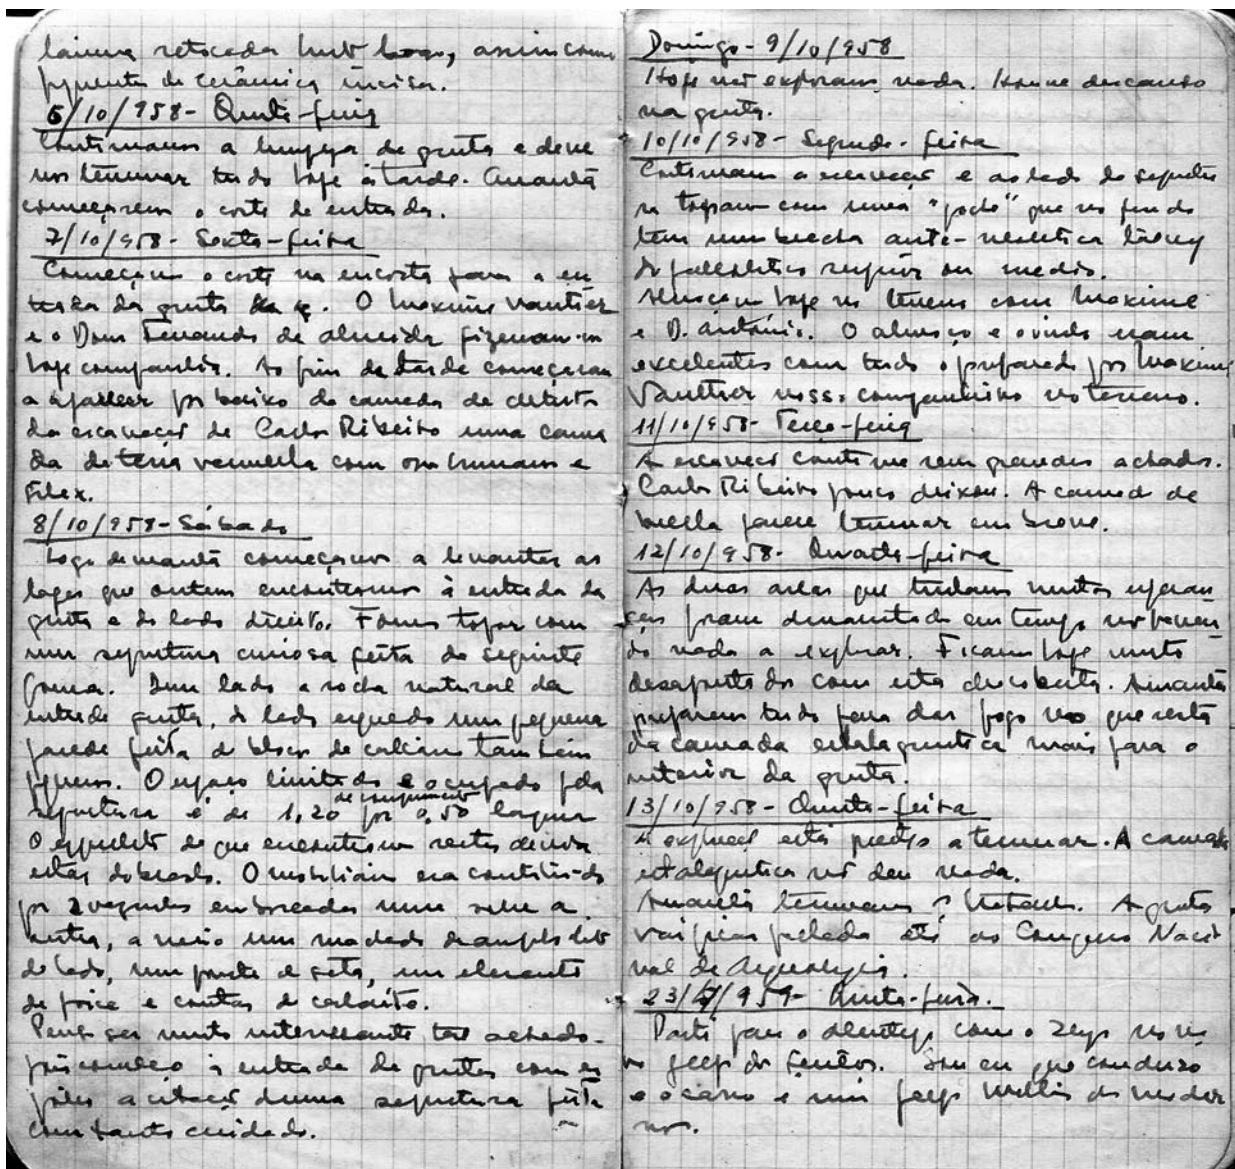 lâmina retocada muito boa, assim como
fragmentos de cerâmica incisa.
6/10/958 - Quinta-feira
Continuamos a limpeza da gruta e deve
mos terminar tudo hoje à tarde. Amanhã
começaremos o corte de entrada.
7/10/958 - Sexta-feira
Começamos o corte na encosta para a en
trada da gruta. O Maxime Vaultier
e o Dom Fernando de Almeida fizeram-me
hoje companhia. Ao fim da tarde começaram
a aparecer por baixo da camada de detritos
da escavação de Carlos Ribeiro uma cama
da de terra vermelha com ossos humanos e
silex.
8/10/958 - Sábado
Logo de manhã começamos a levantar as
lages que ontem encontramos à entrada da
gruta e do lado direito. Fomos topar com
uma sepultura curiosa feita da seguinte
forma. Dum lado a rocha natural da
entrada gruta, do lado esquerdo uma pequena
parede feita de blocos de calcário também
pequenos. O espaço limitado e ocupado pela
sepultura é de 1,20 de comprimento por 0,50 largura
O esqueleto de que encontramos restos devia
estar dobrado. O mobiliário era constituído
por 2 vagos emborcados um sobre a
outro, a meio um machado de anfibolito
do lado, uma ponta de seta, um elemento
de foice e contas de calaíte.
Penso ser muito interessante tal achado
pois conheço à entrada de grutas com es
a citação duma sepultura feita
com tanto cuidado.
Domingo - 9/10/958
Hoje não exploramos nada. Houve descanso
na gruta.
10/10/958 - Segunda-feira
Continuamos a escavação e ao lado da sepultura
topamos com uma "poche" que no fundo
tem uma brecha ante-neolitica talvez
do paleolitico superior ou medio.
Almoçamos hoje no terreno com Maxime
e D. António. O almoço e o vinho eram
excelentes com tudo o preparado por Maxime
Vaultier nosso companheiro no terreno.
11/10/958 - Terça-feira
A escavação continua sem grandes achados.
Carlos Ribeiro pouco deixou. A camada de
brecha parece terminar em breve.
12/10/958 - Quarta-feira
As duas areas que tinhamos muitas esperan
ças foram dinamitadas em tempo não haven
do nada a explorar. Ficamos hoje muito
desapontados com esta descoberta. Amanhã
preparamos tudo para dar fogo no que resta
da camada estalagmitica mais para o
interior da gruta.
13/10/958 - Quinta-feira
A exploração está prestes a terminar. A camada
estalagmitica não deu nada.
Amanhã terminamos o trabalho. A gruta
vai ficar fechada até ao Congresso Nacio
nal de Arqueologia.
23/4/959 - Quinta-feira.
Parti para o Alentejo com o Zbyszewski no no
vo jeep dos Serviços. Sou eu que conduzo
e o carro é um jeep Willis dos moder
nos.